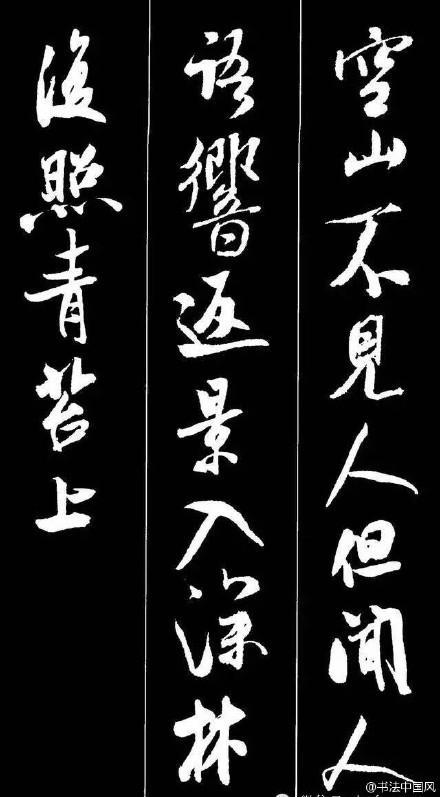 空山不見人但聞人
語響返景入深林
復照青苔上
@书法中国风